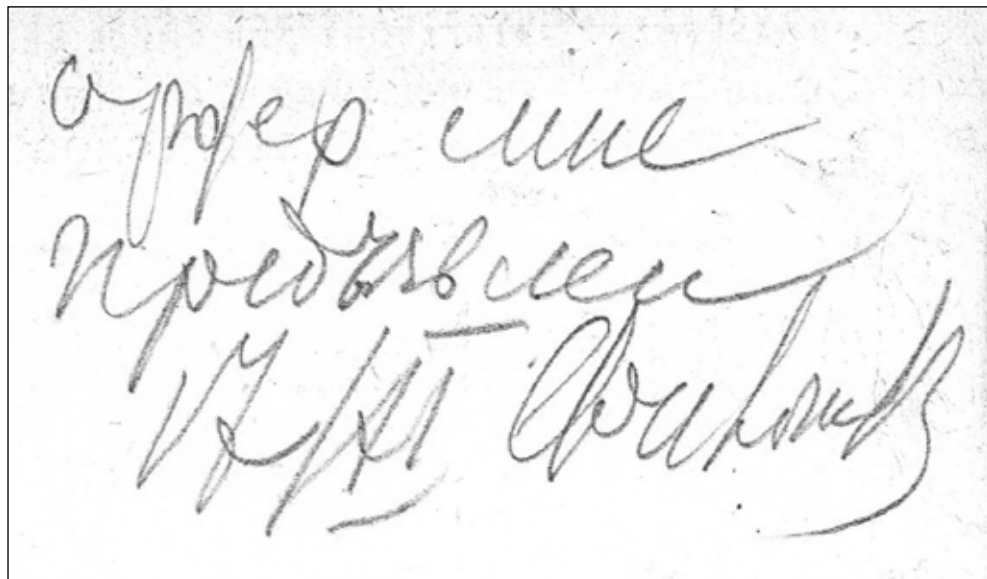 ордер мне
предъявлен
17/XI